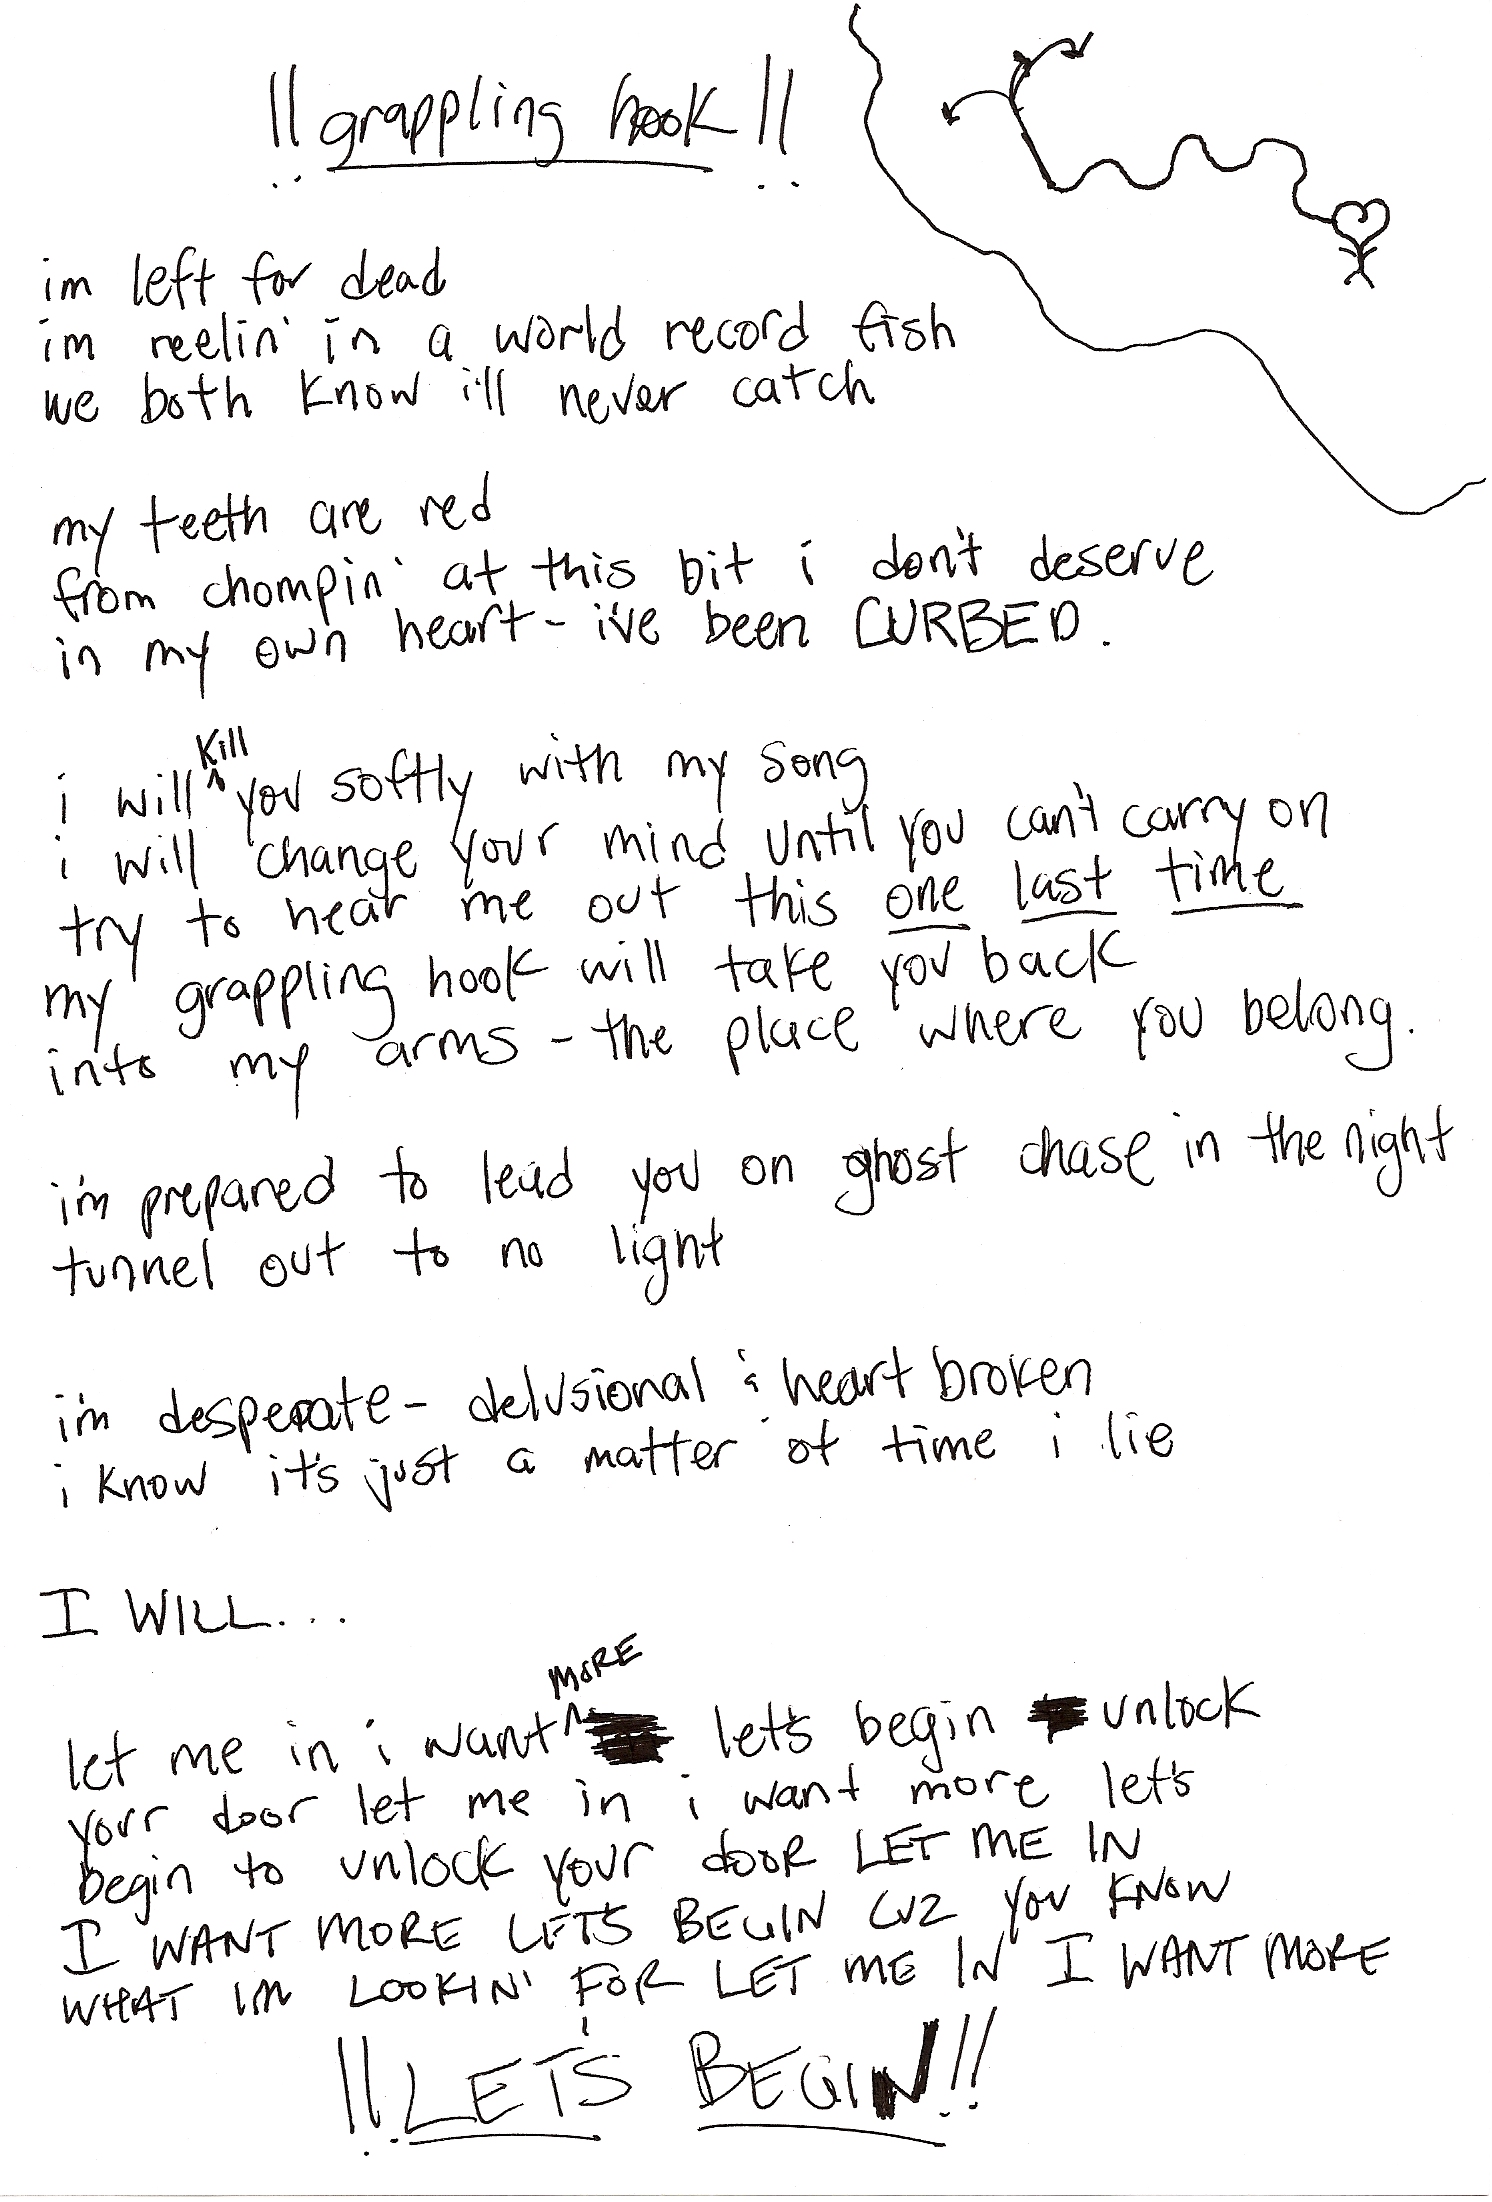 !!grappling hook!!
im left for dead
im reelin' in a world record fish
we both know i'll never catch
my teeth are red
from chompin' at this bit i don't deserve
in my own heart - i've been CURBED.
i will kill you softly with my song
i will change your mind until you can't carry on
try to hear me out this one last time
my grappling hook will take you back
into my arms - the place where you belong.
i'm prepared to lead you on ghost chase in the night
tunnel out to no light
i'm desperate - delusional & heart broken
i know it's just a matter of time i lie
I WILL...
let me in i want MORE let's begin unlock
your door let me in i want more let's
begin to unlock your door LET ME IN
I WANT MORE LET'S BEGIN CUZ YOU KNOW
WHAT IM LOOKIN' FOR LET ME IN I WANT MORE
!!LET'S BEGIN!!